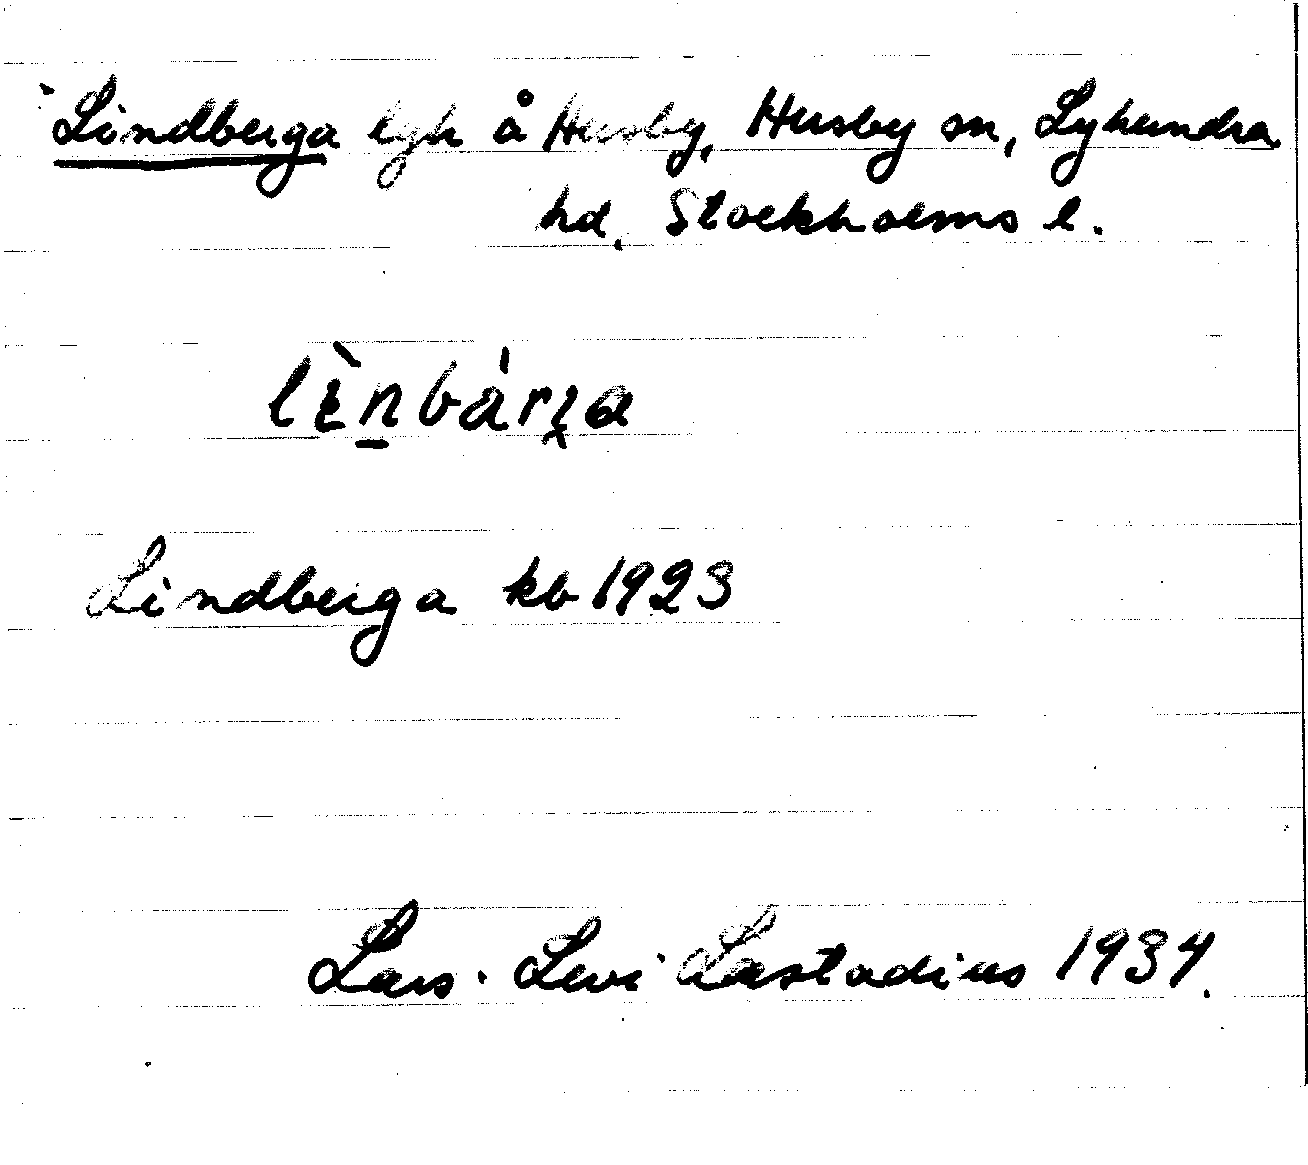 Lindberga lgh å Husby, Husby sn, Lyhundra
hd, Stockholms l.
Lindberga kb 1923
Lars-Levi Læstadius 1934.